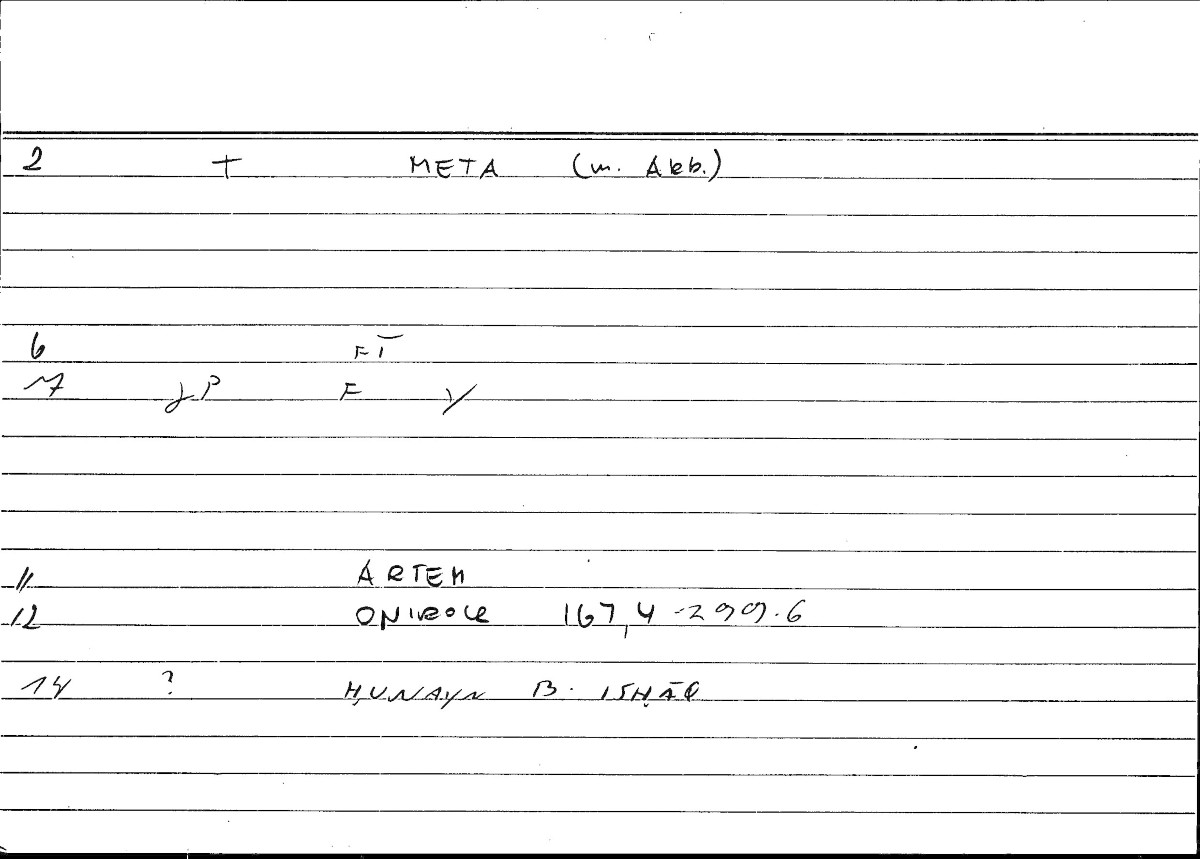 2 + META (m. Abb.)
6 FĪ
17 JP F y
11 ARTEM
12 ONIROCR 167,4-299.6
14 ? ḤUNAYN B. ISḤĀQ